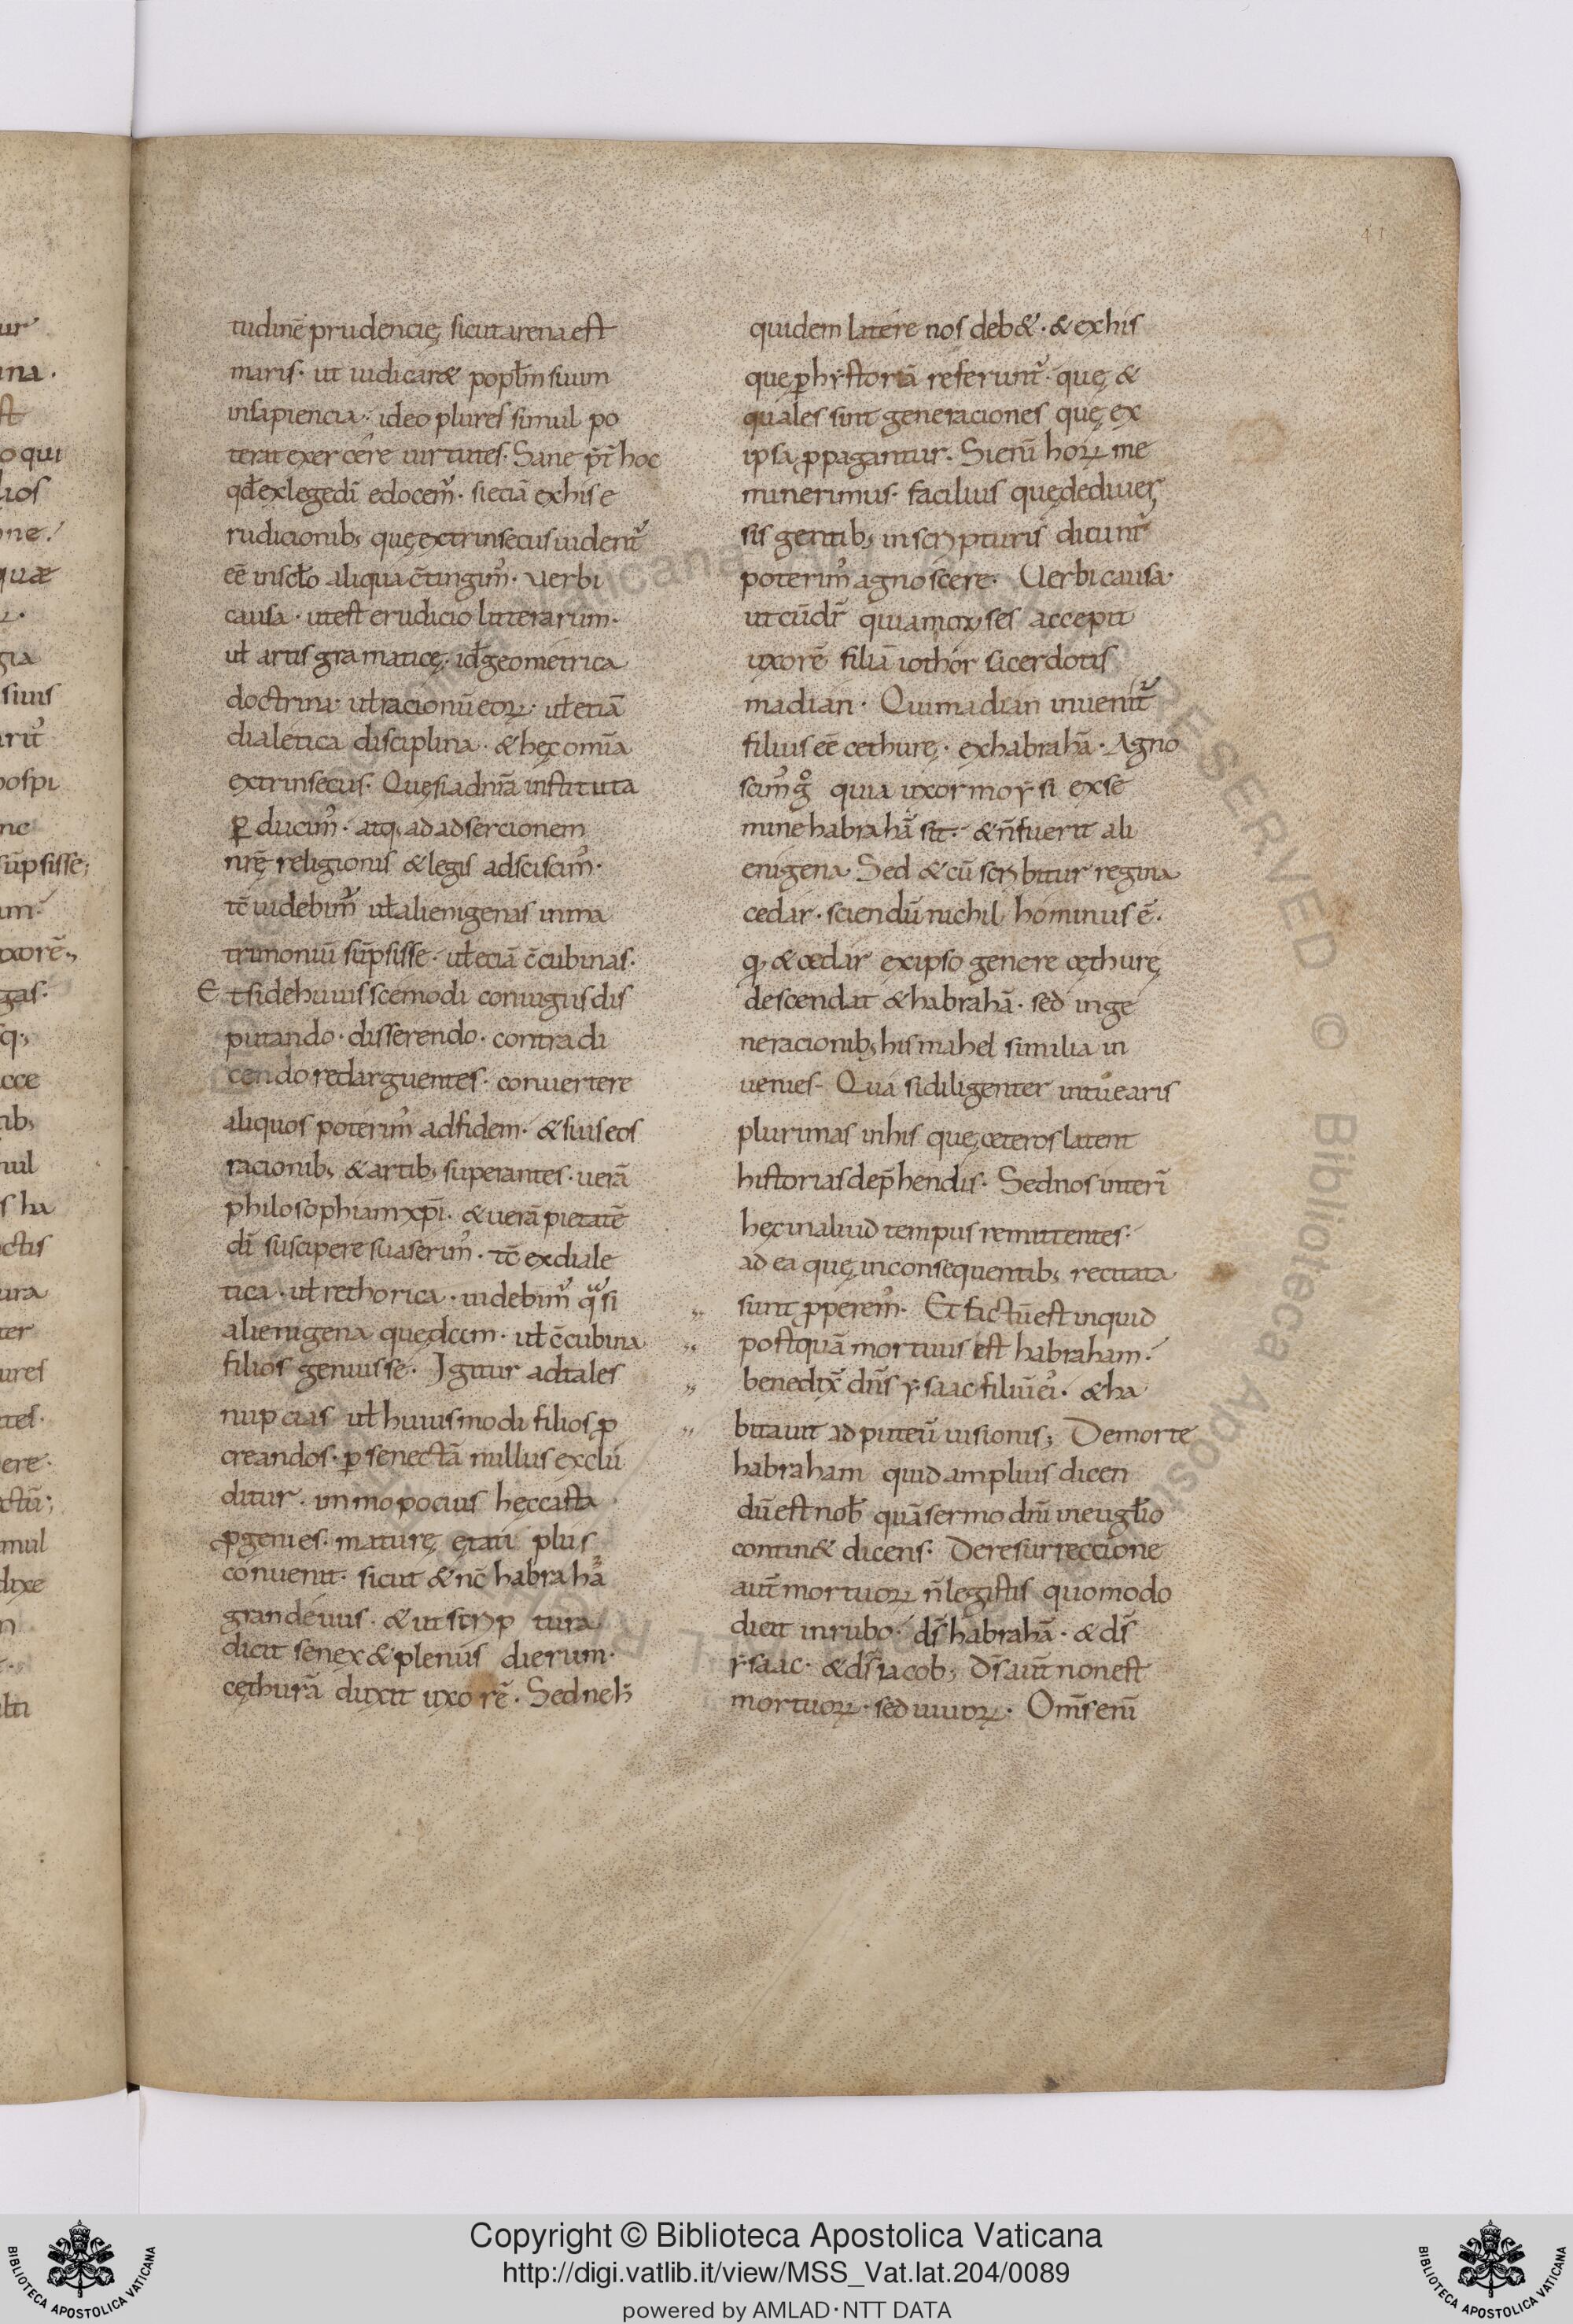 41
tudinē prudencię sicut arena est
maris · ut iudicar& popłm suum
in sapiencia · ideo plures simul po
terat exercere uirtutes · Sane p̄t hoc
qđ ex lege dī edocemꝰ · si eciā ex his e
rudicionib; quę extrinsecus uident᷑
eē in scło aliqua c̄tingimꝰ · uerbi
causa · ut est erudicio litterarum ·
uł artis gramaticę · id geometrica
doctrina · uł racionū eoꝝ · uł eciā
dialetica disciplina · & hęc omīa
extrinsecus · Quę si ad nr̄a instituta
ꝑducimꝰ · atq; ad adsercionem
nrę̄ religionis & legis adsciscimꝰ ·
tc̄ uidebimꝰ uł alienigenas in ma
trimoniū sūpsisse · uł eciā c̄cubinas ·
Et si de huius scemodi coniugiis dis
putando · disserendo · contradi
cendo redarguentes · conuertere
aliquos poterimꝰ ad fidem · & suis eos
racionib; & artib; superantes · uerā
philosophiam xp̄i · & uerā pietatē
dī suscipere suaserimꝰ · tc̄ ex diale
tica · uł rethorica · uidebimꝰ qᵃsi
alienigena quędcm · uł c̄cubina
filios genuisse · Igitur ad tales
nupcias uł huiusmodi filios ꝓ
creandos · ꝑ senectā nullus exclu
ditur · immo pocius hęc casta
ꝓgenies · maturę ętati plus
conuenit · sicut & nc̄ habrahā
grandeuus · & ut scrip tura
dicit senex & plenus dierum ·
cęthurā duxit uxorē · Sed neh̄
quidem latere nos deb& · & ex his
que ꝑ hystoriā referunt᷑ · quę &
quales sint generaciones quę ex
ipsa ꝓpagantur · Si enī hoꝝ me
minerimus · facilius quę de diuer
sis gentib; in scripturis dicunt᷑
poterimꝰ agnoscere · Uerbi causa ·
ut cū dr̄ quia moyses accepit
uxorē filiā iothor sacerdotis
madian · Qui madian inuenit᷑
filius eē cethurę · ex habrahā · Agno
scimꝰ gͦ quia uxor moysi ex se
mine habrahā sit · & n̄ fuerit ali
enigena · Sed & cū scribitur regina
cedar · sciendū nichil hominus ē ·
q; & cedar ex ipso genere cęthurę
descendat & habrahā · sed in ge
neracionib; hismahel similia in
uenies · Quā si diligenter intuearis
plurimas in his quę ceteros latent
historias dep̄hendis · Sed nos interī
hęc in aliud tempus remittentes ·
ad ea quę in consequentib; recitata
sunt ꝓperemꝰ · Et factū est inquid
postquā mortuus est habraham ·
benedix̄ dn̄s ysaac filiū eiꝰ · & ha
bitauit ad puteū uisionis; De morte
habraham quid amplius dicen
dū est nob̄ quā sermo dn̄i in eugłio
contin& dicens · De resurreccione
aut̄ mortuoꝝ n̄ legistis quomodo
dicit in rubo · ds̄ habrahā · & ds̄
ysaac · & ds̄ iacob; Ds̄ aut̄ non est
mortuoꝝ · sed uiuoꝝ · Om̄s enī
Copyright © Biblioteca Apostolica Vaticana
http://digi.vatlib.it/view/MSS_Vat.lat.204/0089
powered by AMLAD · NTT DATA
BIBLIOTECA APOSTOLICA VATICANA
BIBLIOTECA APOSTOLICA VATICANA